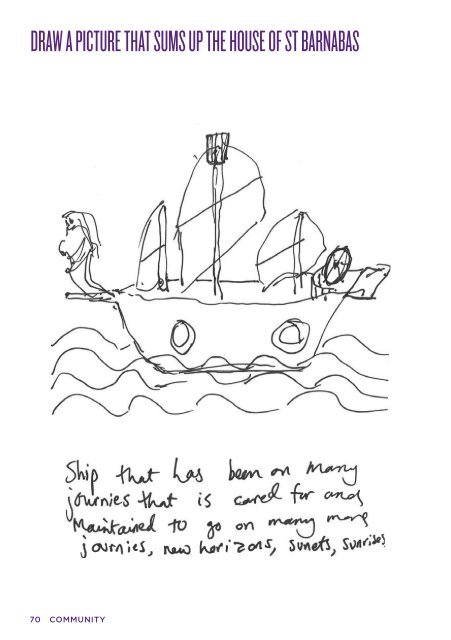 DRAW A PICTURE THAT SUMS UP THE HOUSE OF ST BARNABAS
Ship that has been on many
journies that is cared for and
Maintained to go on many more
journies, new horizons, sunets, sunrises
70 COMMUNITY